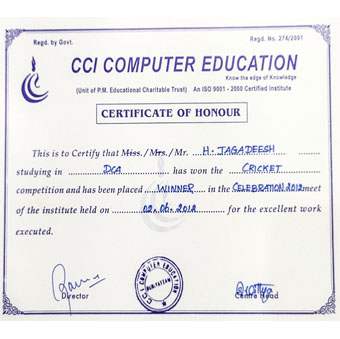 Regd. by Govt. Regd. No. 274/2001
CCI COMPUTER EDUCATION
Know the edge of Knowledge
(Unit of P.M. Educational Charitable Trust) An ISO 9001 - 2000 Certified Institute
CERTIFICATE OF HONOUR
This is to Certify that Miss./Mrs./Mr. H. JAGADEESH
studying in DCA has won the CRICKET
competition and has been placed WINNER in the CELEBRATION 2012 meet
of the institute held on 02.06.2012 for the excellent work
executed.
Director Centre Head
CCI COMPUTER EDUCATION